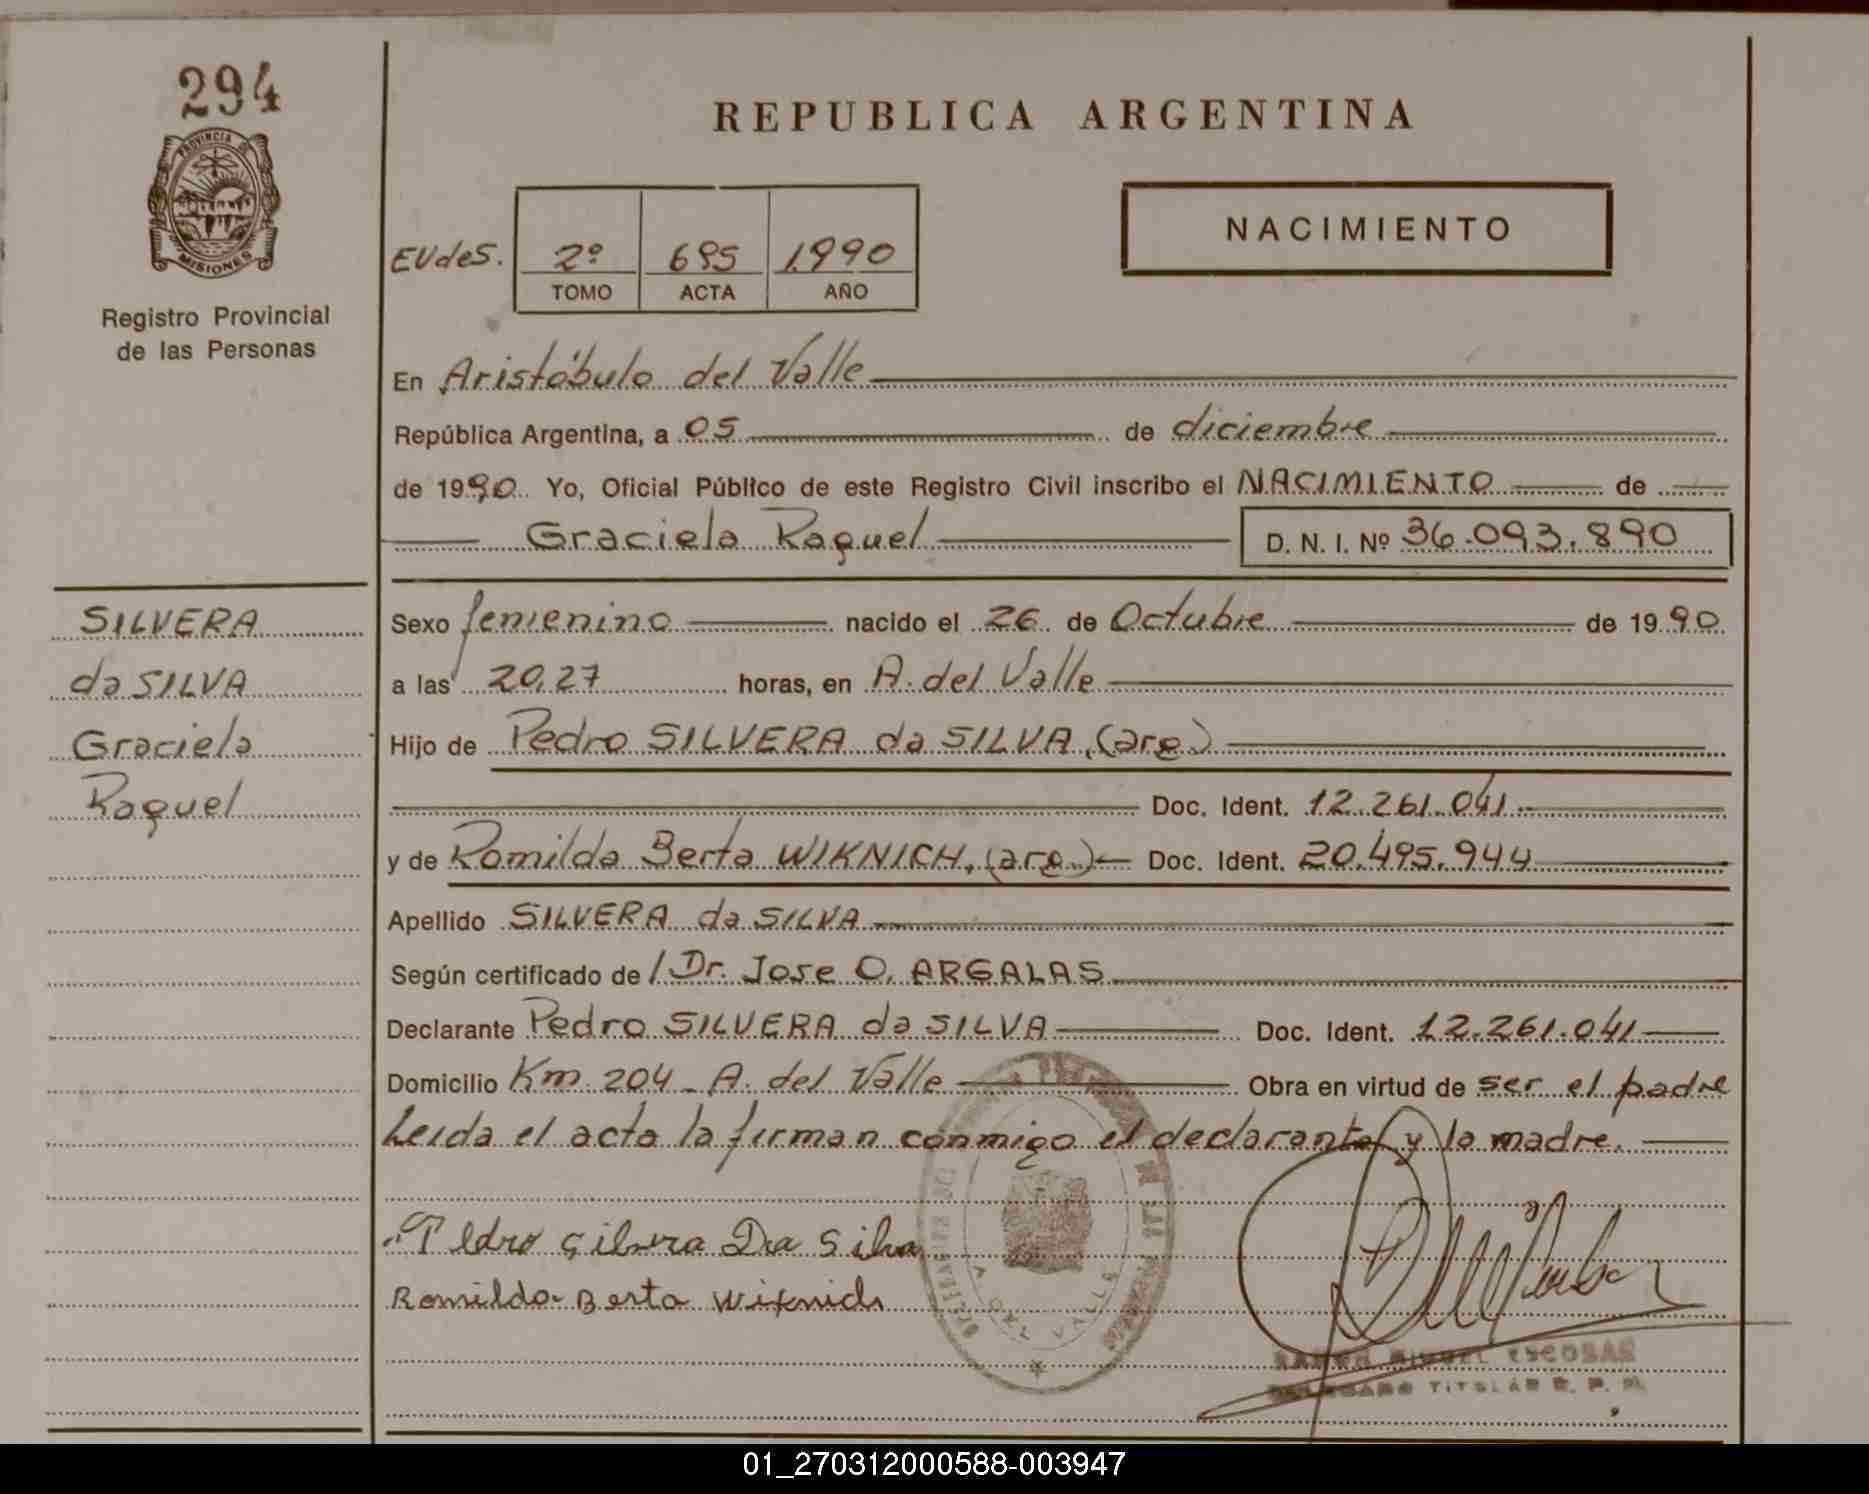 294
PROVINCIA DE
MISIONES
Registro Provincial
de las Personas
REPUBLICA ARGENTINA
NACIMIENTO
EUdeS. 2º 695 1.990
TOMO ACTA AÑO
En Aristóbulo del Valle
República Argentina, a 05 de diciembre
de 1990 Yo, Oficial Público de este Registro Civil inscribo el NACIMIENTO de
Graciela Raquel D. N. I. Nº 36.093.890
SILVERA
da SILVA
Graciela
Raquel
Sexo femenino nacido el 26 de Octubre de 1990
a las 20,27 horas, en A. del Valle
Hijo de Pedro SILVERA da SILVA, (arg)
Doc. Ident. 12.261.041
y de Romilda Berta WIKNICH, (arg.) Doc. Ident. 20.495.944
Apellido SILVERA da SILVA
Según certificado de / Dr. Jose O. ARGALAS
Declarante Pedro SILVERA da SILVA Doc. Ident. 12.261.041
Domicilio Km 204 - A. del Valle Obra en virtud de ser el padre
Leida el acta la firman conmigo el declarante y la madre.
Pedro Silvera Da Silva
Romilda Berta Wiknich
VALLE
RAMON MIGUEL ESCOBAR
DELEGADO TITULAR R. P. P.
01_270312000588-003947